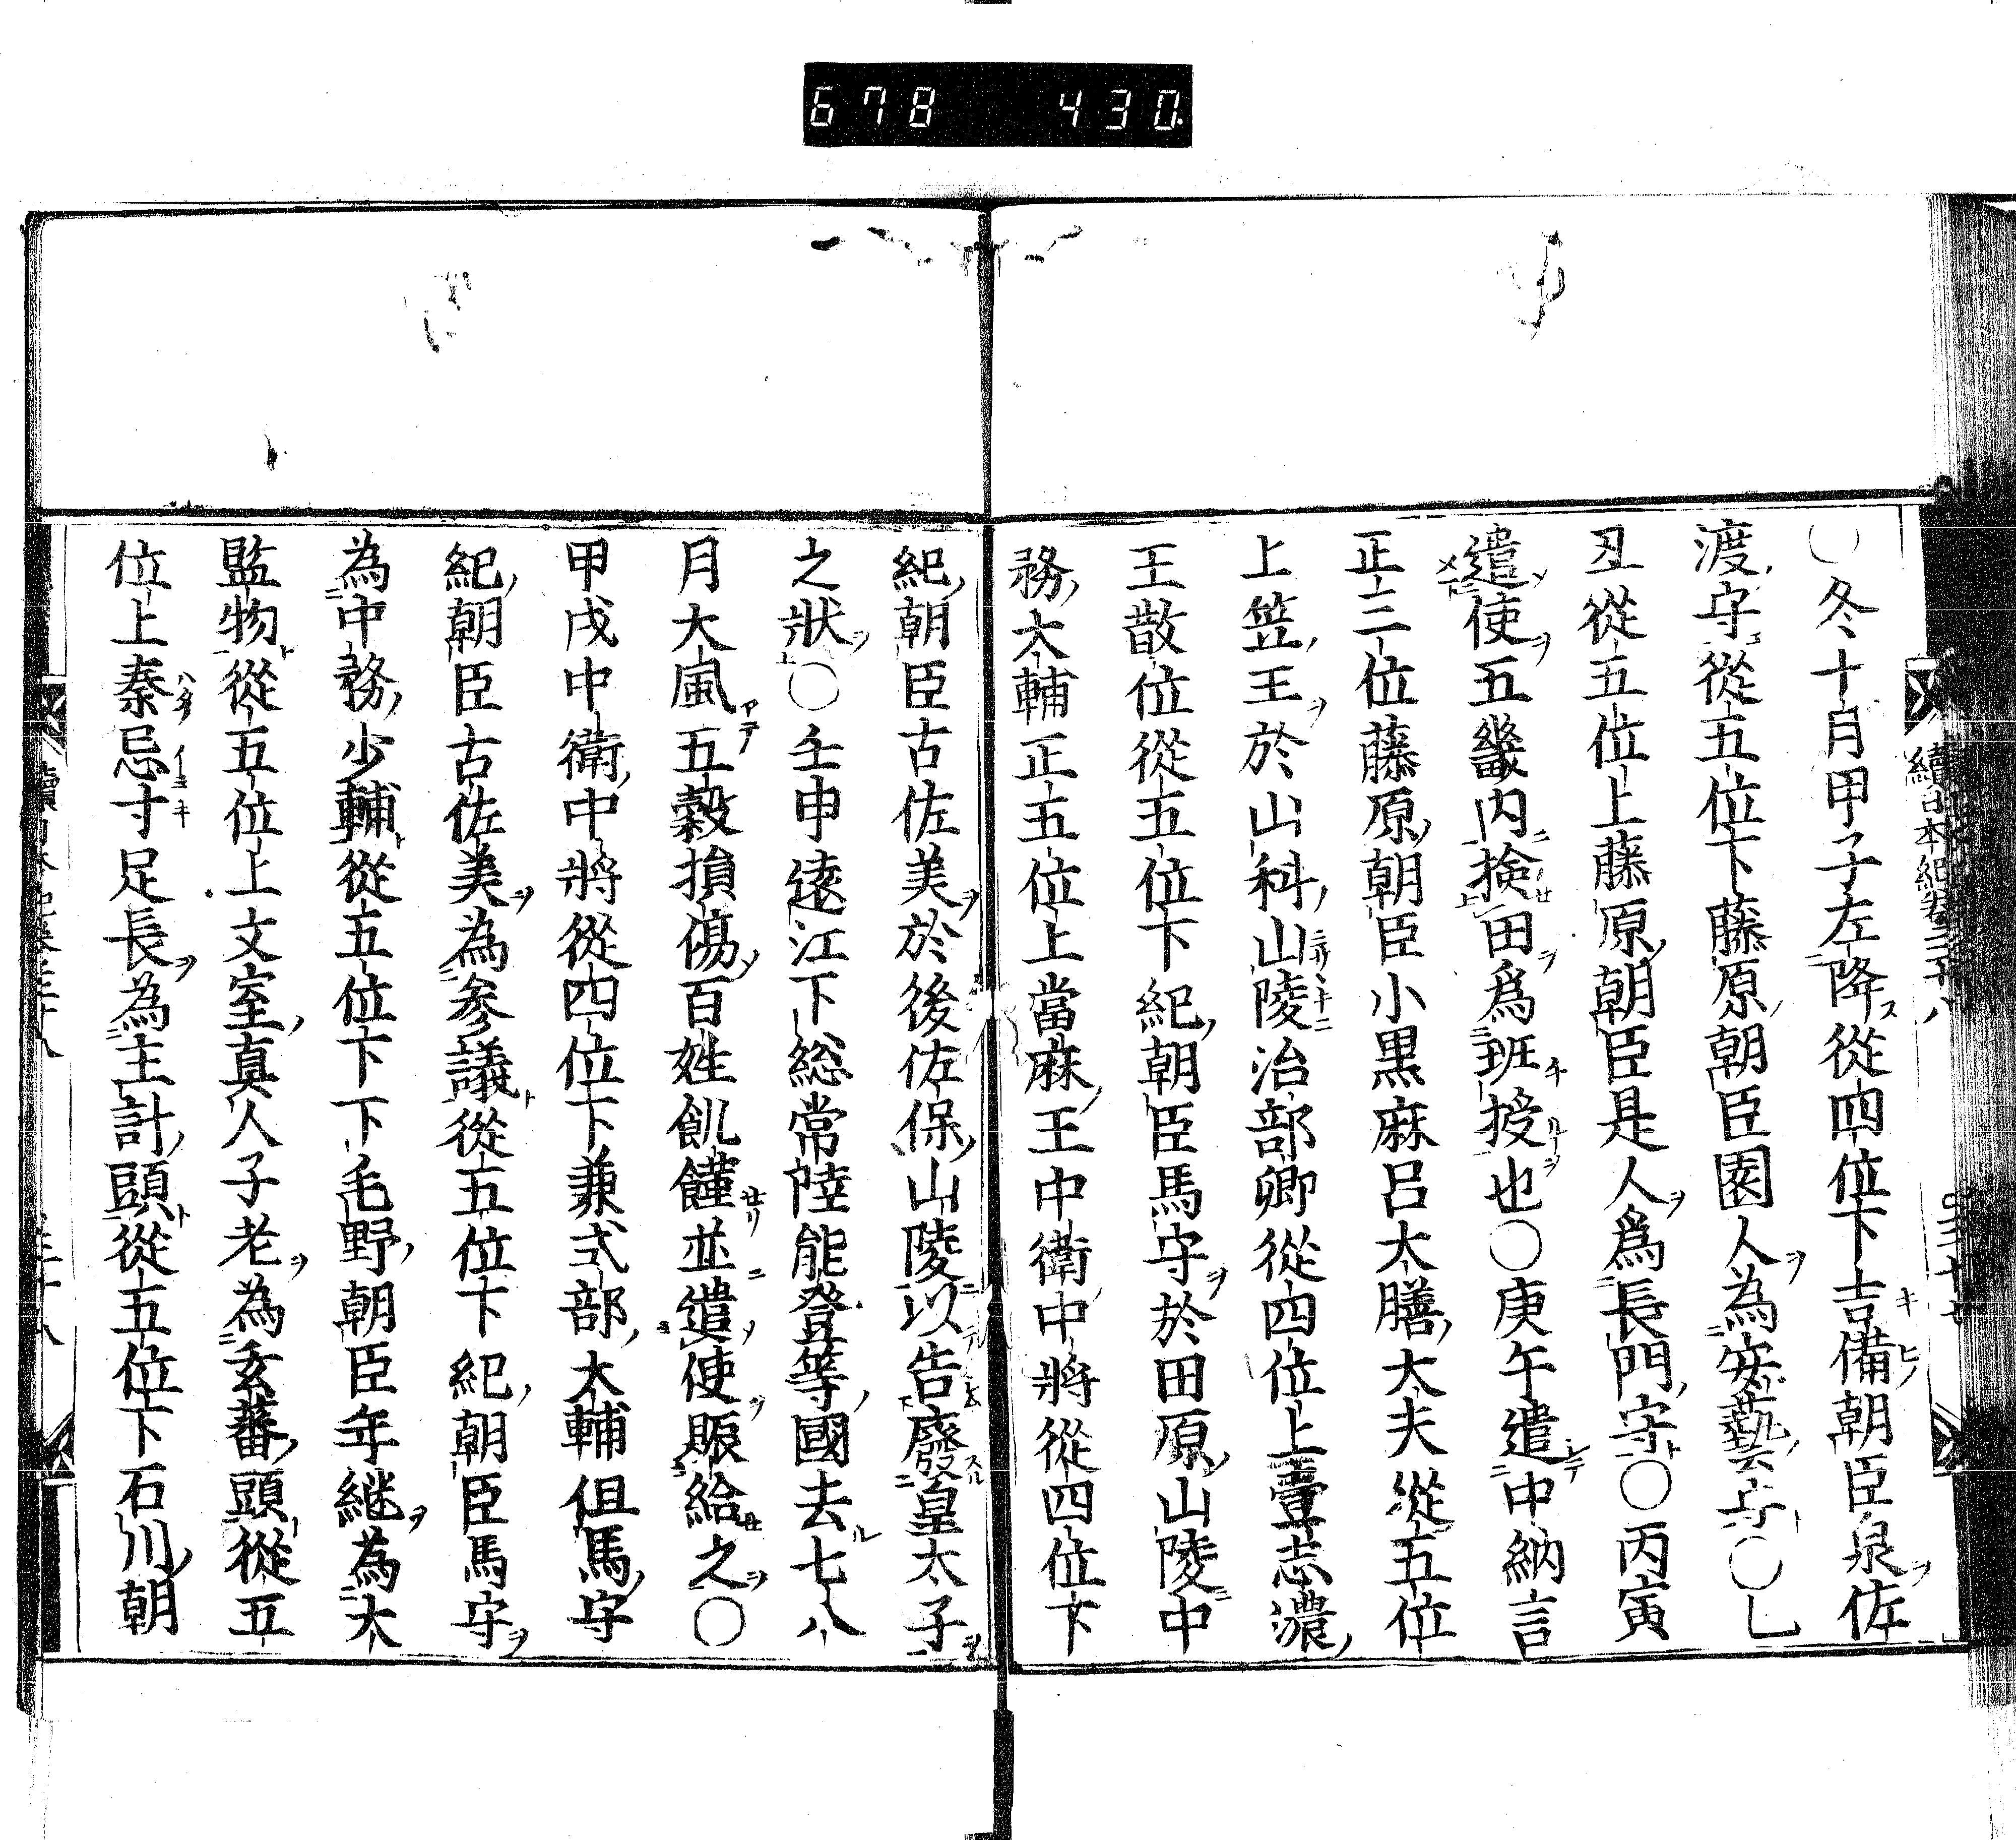 678 430
○冬十月甲子左降從四位下吉備朝臣泉佐
渡守從五位下藤原朝臣園人為安藝守○乙
丑從五位上藤原朝臣是人爲長門守○丙寅
遣使五畿内検田爲班授也○庚午遣中納言
正三位藤原朝臣小黒麻呂大膳大夫從五位
上笠王於山科山陵治部卿從四位上壹志濃
王散位從五位下紀朝臣馬守於田原山陵中
務大輔正五位上當麻王中衛中將從四位下
紀朝臣古佐美於後佐保山陵以告廢皇太子
之狀○壬申遠江下総常陸能登等國去七八
月大風五穀損傷百姓飢饉並遣使賑給之○
甲戌中衛中將從四位下兼式部大輔但馬守
紀朝臣古佐美為參議從五位下紀朝臣馬守
為中務少輔從五位下下毛野朝臣年継為大
監物從五位上文室真人子老為玄蕃頭從五
位上秦忌寸足長為主計頭從五位下石川朝